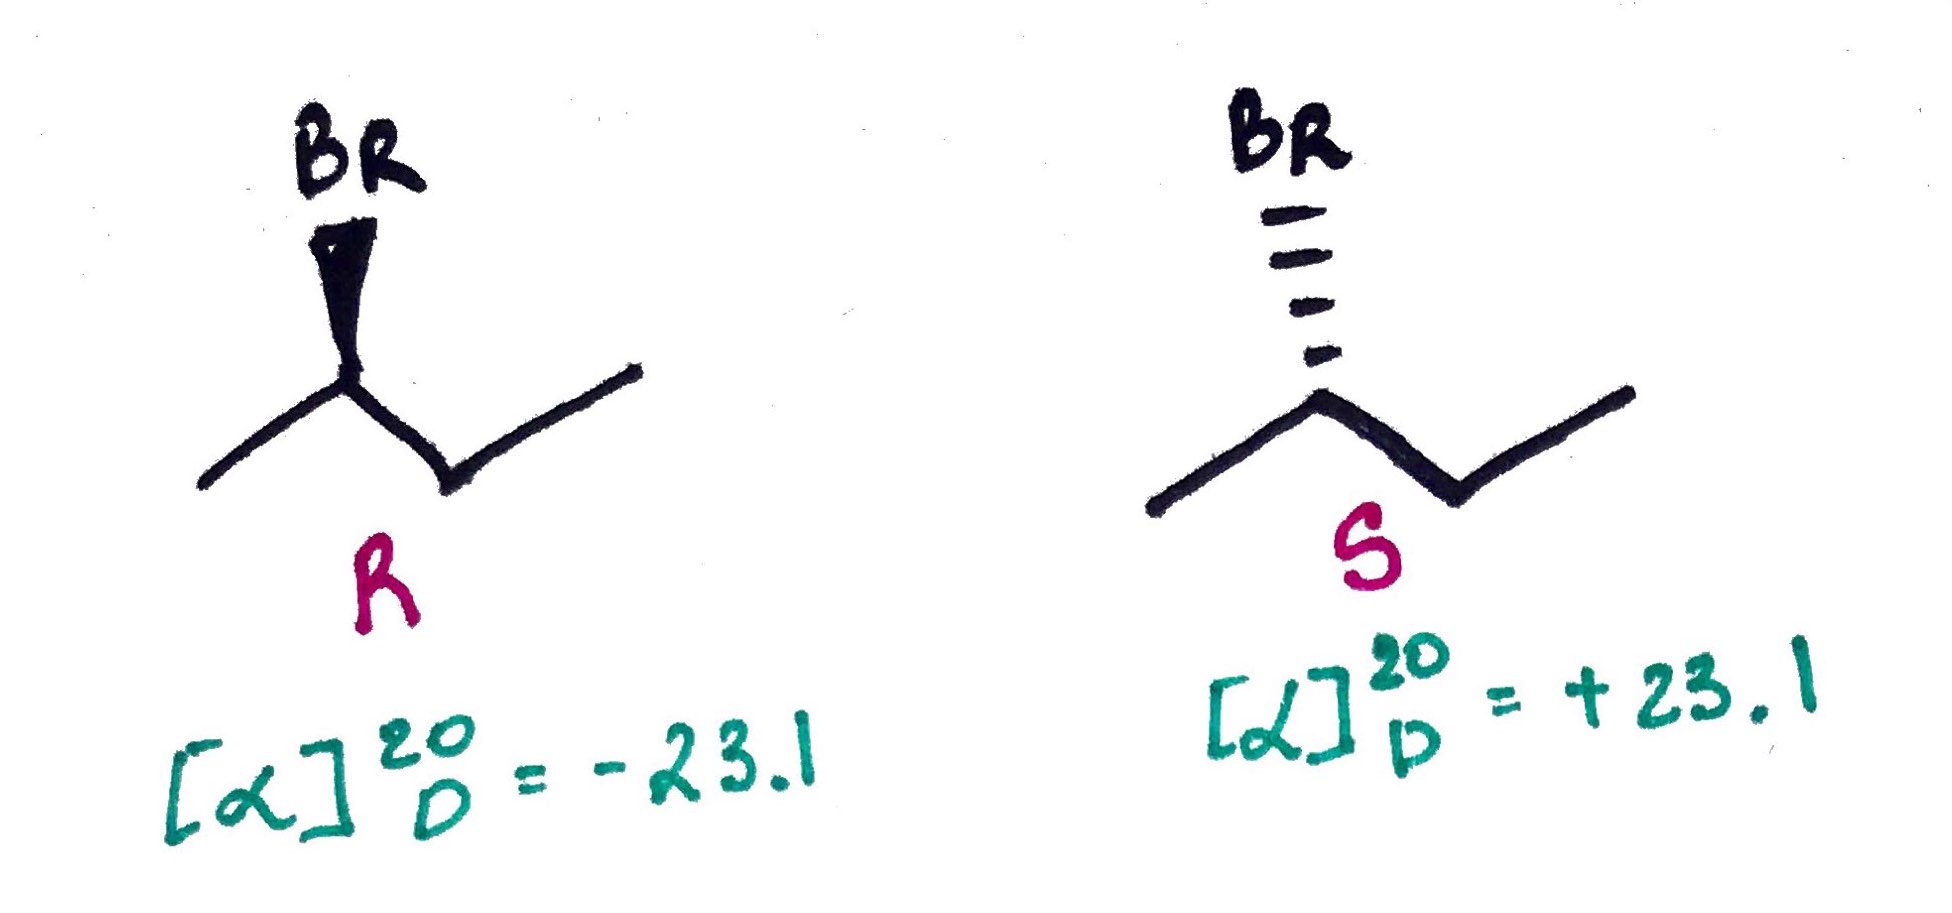 BR
R
[α]²⁰D = -23.1
BR
S
[α]²⁰D = +23.1